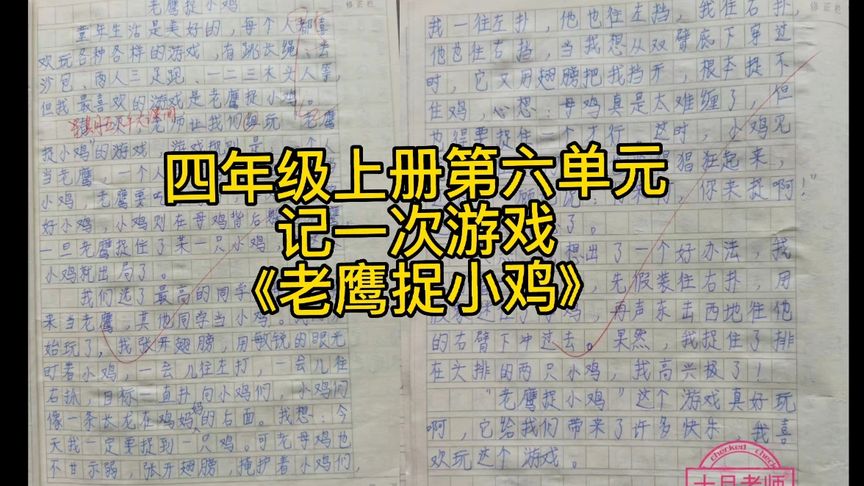 老鹰捉小鸡
童年生活是美好的，每个人都喜
欢玩各种各样的游戏，有跳长绳、丢
沙包、两人三足跑、一二三木头人等，
但我最喜欢的游戏是老鹰捉小鸡。
老师让我们组玩“老鹰
捉小鸡”的游戏，游戏规则是
当老鹰，一个人
小鸡，老鹰要
好小鸡，小鸡则在母鸡背后
一旦老鹰捉住了某一只小鸡，
小鸡就出局了。
我们选了最高的同学
来当老鹰，其他同学当小鸡。
始玩了，我张开翅膀，用敏锐的眼光
盯着小鸡，一会儿往左打，一会儿往
右抓，目标一直扑向小鸡们，小鸡们
像一条长龙在鸡妈妈的后面。我想：今
天我一定要捉到一只鸡。可老母鸡也
不甘示弱，张开翅膀，掩护着小鸡们，
我一往左扑，他也往左挡，我往右扑，
他也往右挡，当我想从双臂底下穿过
时，它又用翅膀把我挡开，根本捉不
住鸡，心想：母鸡真是太难缠了，但
也得要捉住一个才行。这时，小鸡见
猖狂起来，
你来捉啊！”
了。
想出了一个好办法，我
先假装往右扑，用
再声东击西地往他
的右臂下冲过去。果然，我捉住了排
在头排的两只小鸡，我高兴极了！
“老鹰捉小鸡”这个游戏真好玩
啊，它给我们带来了许多快乐，我喜
欢玩这个游戏。
四年级上册第六单元
记一次游戏
《老鹰捉小鸡》
checked